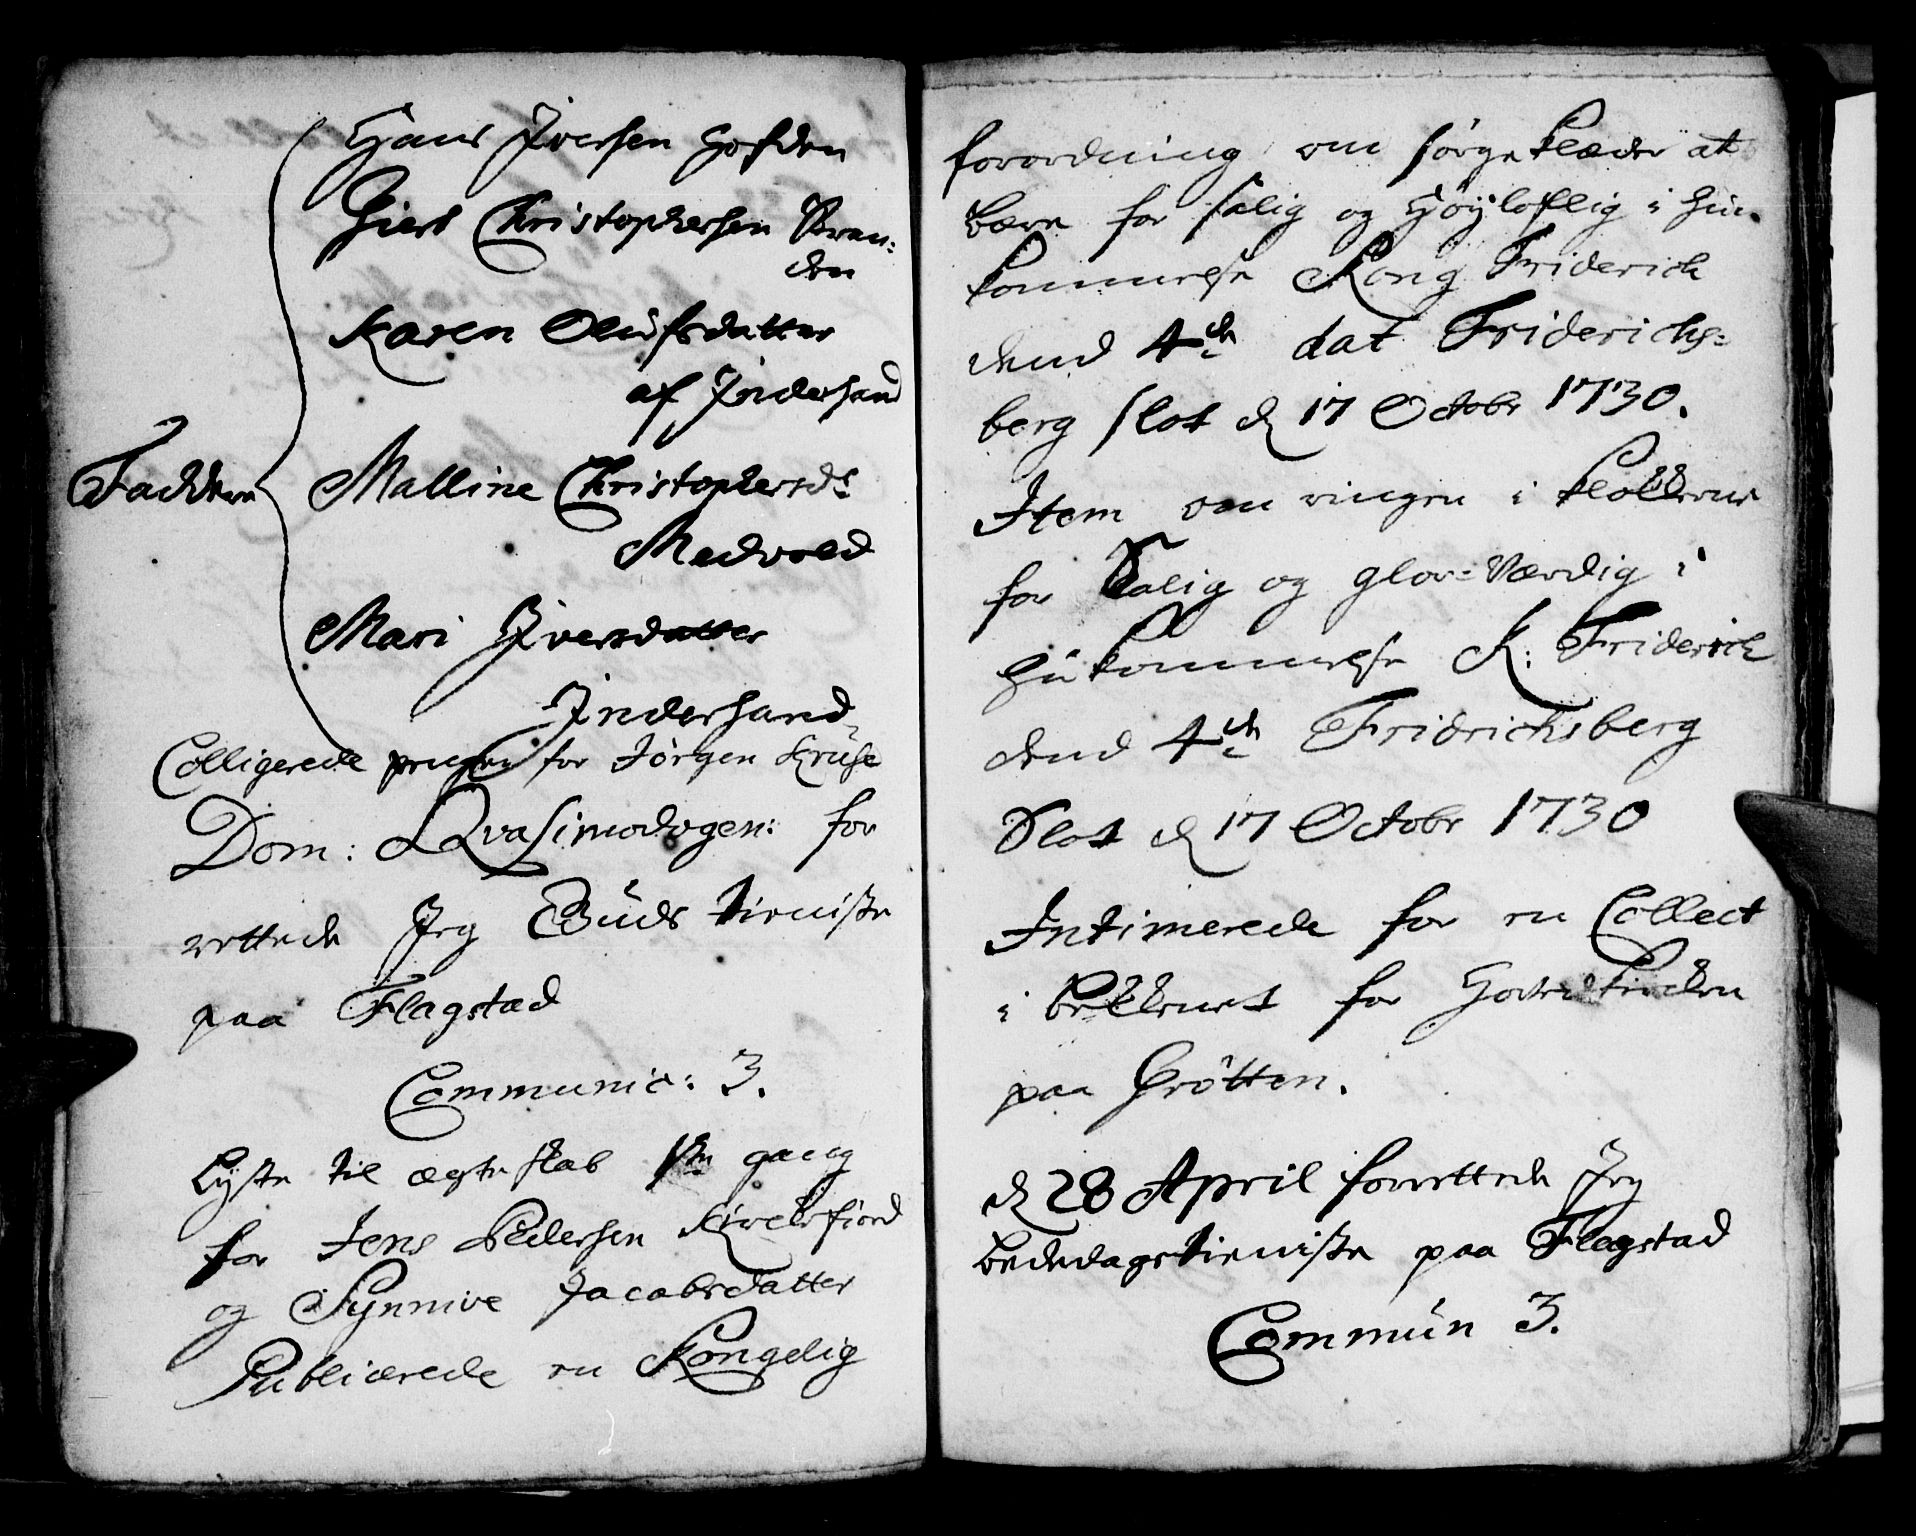 Hans Jversen Hofden
Giert Christophersen Stran:
den
Karen Olüfsdatter
af Jndersand
Faddere
Malline Christophersdr
Medvold
Mari Jversdatter
Jndersand
Colligerede pengene for Jørgen Krüse
Dom: Qvasimodogen: for
rettede Jeg Guds tieniste
paa Flagstad
Communic: 3.
Lyste til ægteskab 1ste gang
for Jens Pedersen Kirckefiord
og Synnive Jacobsdatter
Publicerede en Kongelig
forordning om sørgeklæder at
bære for salig og Høyloflig i hu-
kommelse Kong Friderich
dend 4de dat Friderichs-
berg slot d 17 Octobr 1730.
Jtem om ringen i klokkerne
for Salig og glor-Værdig i
hükommelse K: Friderich
dend 4de Fridrichsberg
Slot d 17 Octobr 1730
Jntimerede for en Collect
i bekkenet for Hovedkircken
paa Grøtten.
d 28 April forrettede Jeg
bededagstieniste paa Flagstad
Commün 3.